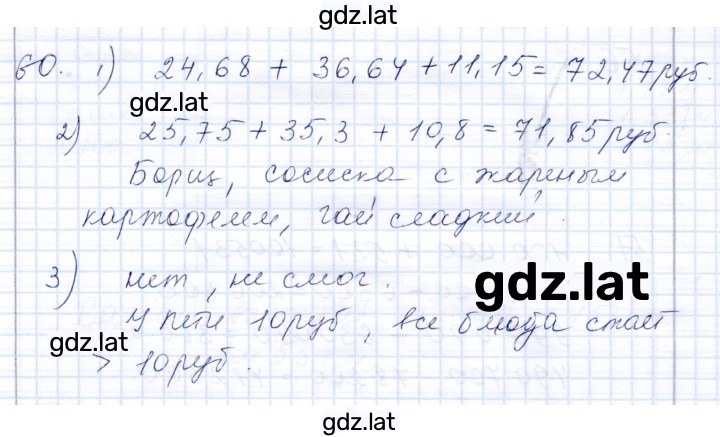 gdz.lat
60. 1) 24,68 + 36,64 + 11,15 = 72,47 руб.
gdz.lat
2) 25,75 + 35,3 + 10,8 = 71,85 руб.
Борщ, сосиска с жареным
картофелем, чай сладкий.
3) нет, не смог.
gdz.lat
У пети 10 руб, все блюда стоят
gdz.lat
> 10 руб.
gdz.lat